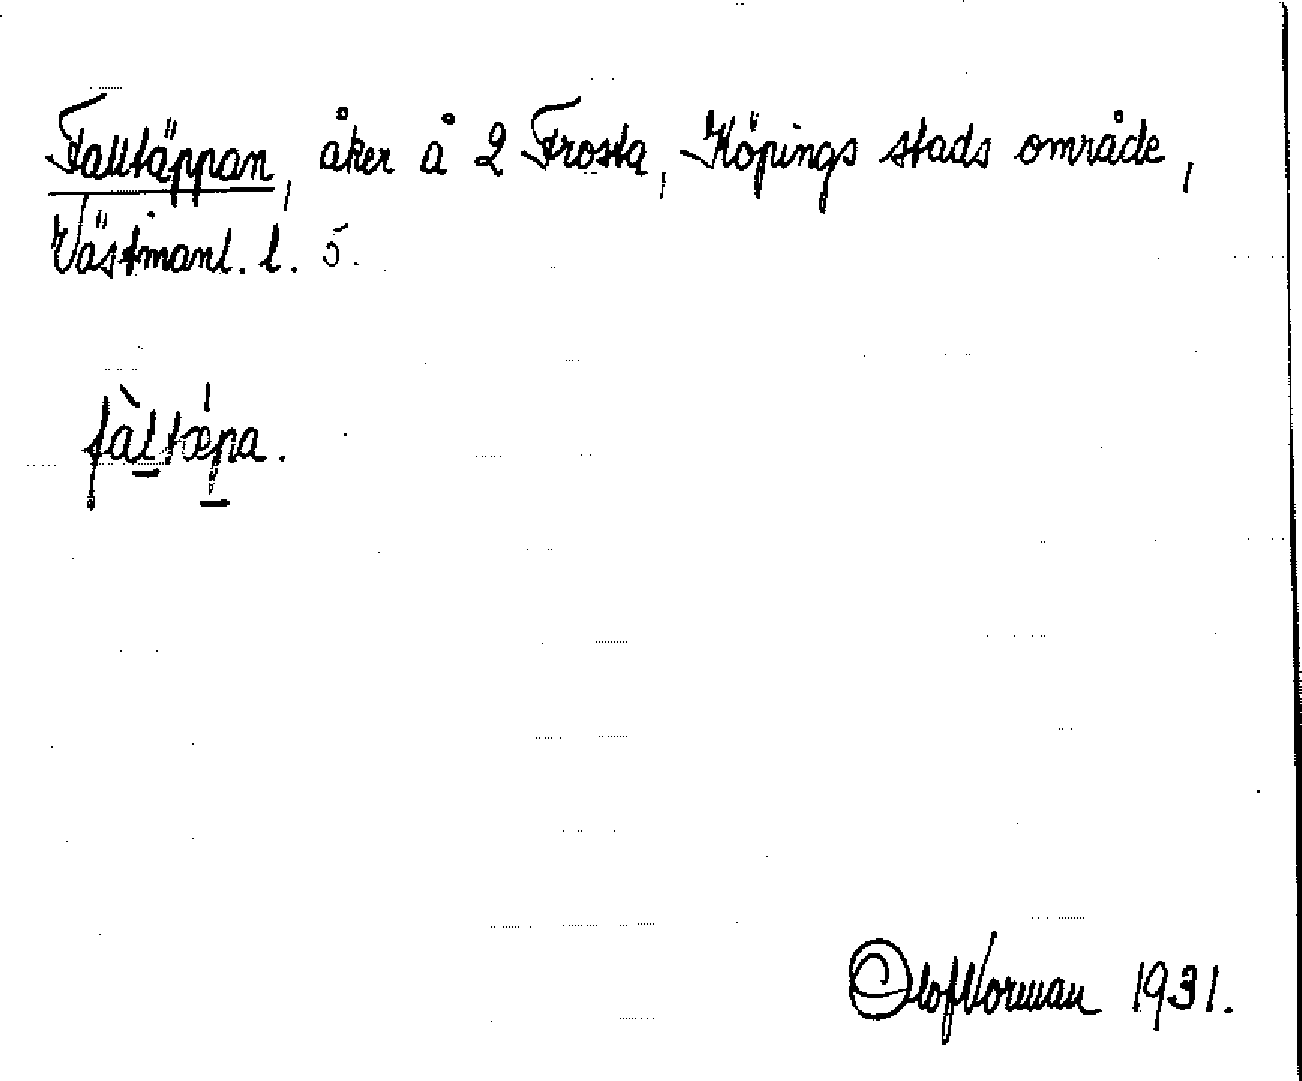 Falltäppan, åker å 2 Frosta, Köpings stads område,
Västmanl. l. 5.
fàltæ̍pa.
Olof Norman 1931.